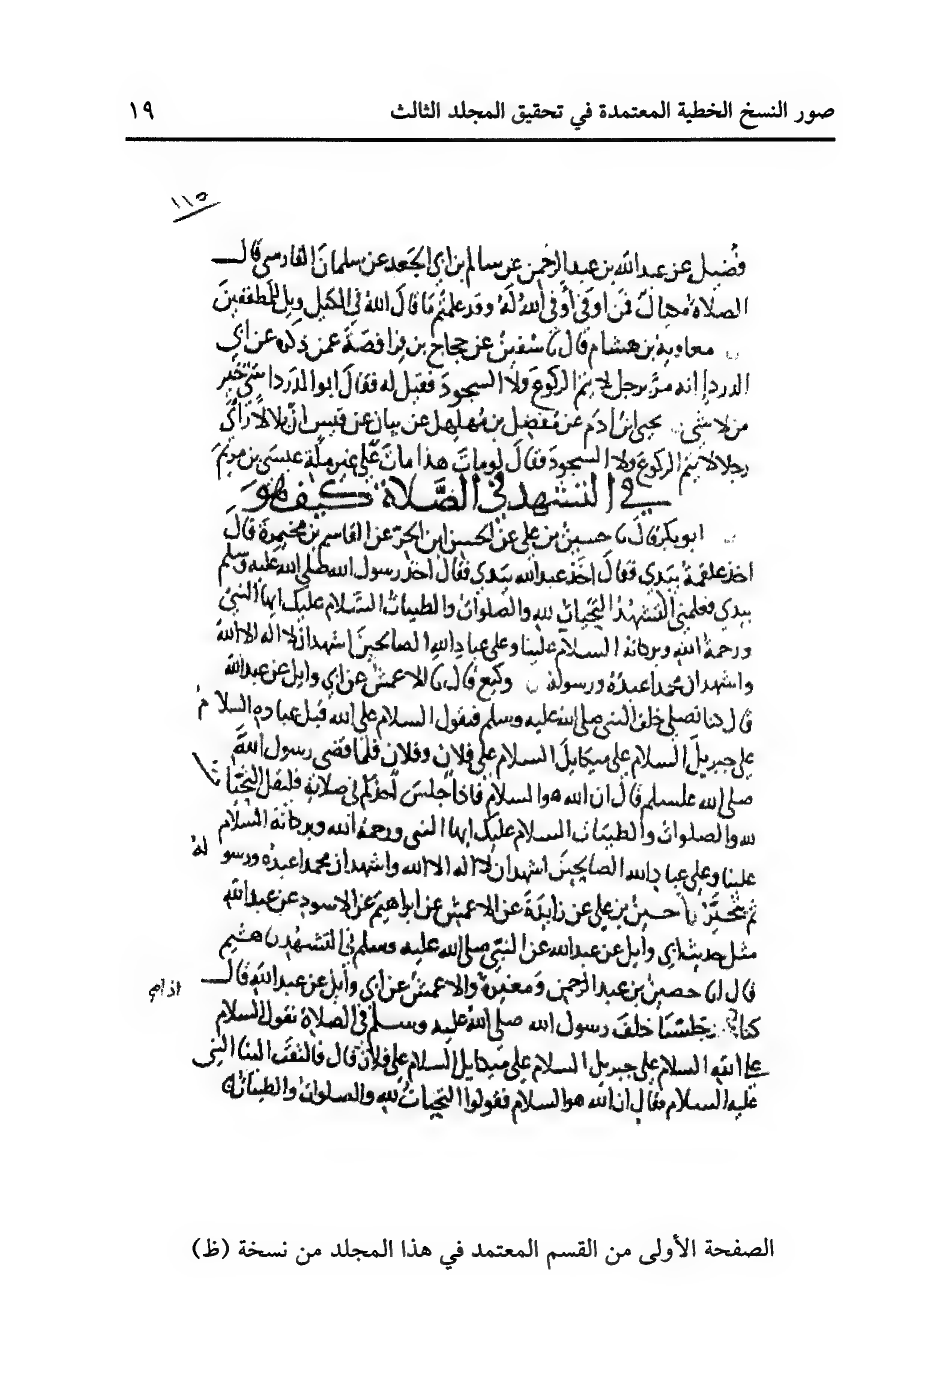 صور النسخ الخطية المعتمدة في تحقيق المجلد الثالث ١٩
١١٥
فضيل عن عبد الله بن عبد الرحمن عن سالم بن ابي الجعد عن سلمان الفارسي قال
الصلاة مكيال فمن اوفى أوفى الله له وقد علمتم ما قال الله في الكيل ويل للمطففين
معاوية بن هشام قال نا سفين عن حجاج بن فرافصة عمن ذكره عن ابي
الدردا انه مر برجل لا يتم الركوع ولا السجود فقيل له فقال ابو الدردا شي خير
من لا شي يحيى ابن ادم عن مفضل بن مهلهل عن بيان عن قيس ان بلالا رأى
رجلا لا يتم الركوع ولا السجود فقال لو مات هذا مات على غير ملة عيسى بن مريم
في التشهد في الصلاة كيف هو
ابو بكر قال نا حسين بن علي عن الحسن ابن الحر عن القاسم بن مخيمرة قال
اخذ علقمة بيدي فقال اخذ عبد الله بيدي فقال اخذ رسول الله صلى الله عليه وسلم
بيدي فعلمني التشهد التحيات لله والصلوات والطيبات السلام عليك ايها النبي
ورحمة الله وبركاته السلام علينا وعلى عباد الله الصالحين اشهد ان لا اله الا الله
واشهد ان محمدا عبده ورسوله وكيع قال نا الاعمش عن ابي وايل عن عبد الله
قال كنا نصلي خلف النبي صلى الله عليه وسلم فنقول السلام على الله قبل عباده السلام
على جبريل السلام على ميكايل السلام على فلان وفلان فلما قضى رسول الله
صلى الله عليه وسلم قال ان الله هو السلام فاذا جلس احدكم في صلاته فليقل التحيات
لله والصلوات والطيبات السلام عليك ايها النبي ورحمة الله وبركاته السلام
علينا وعلى عباد الله الصالحين اشهد ان لا اله الا الله واشهد ان محمدا عبده ورسوله
ثم يتخير نا حسين بن علي عن زايدة عن الاعمش عن ابراهيم عن الاسود عن عبد الله
مثل حديث ابي وايل عن عبد الله عن النبي صلى الله عليه وسلم في التشهد نا هشيم
قال انا حصين بن عبد الرحمن ومغيرة والاعمش عن ابي وايل عن عبد الله قال
كنا اذا جلسنا خلف رسول الله صلى الله عليه وسلم في الصلاة نقول السلام
على الله السلام على جبريل السلام على ميكايل السلام على فلان قال فالتفت الينا النبي
عليه السلام فقال ان الله هو السلام فقولوا التحيات لله والصلوات والطيبات
الصفحة الأولى من القسم المعتمد في هذا المجلد من نسخة (ظ)